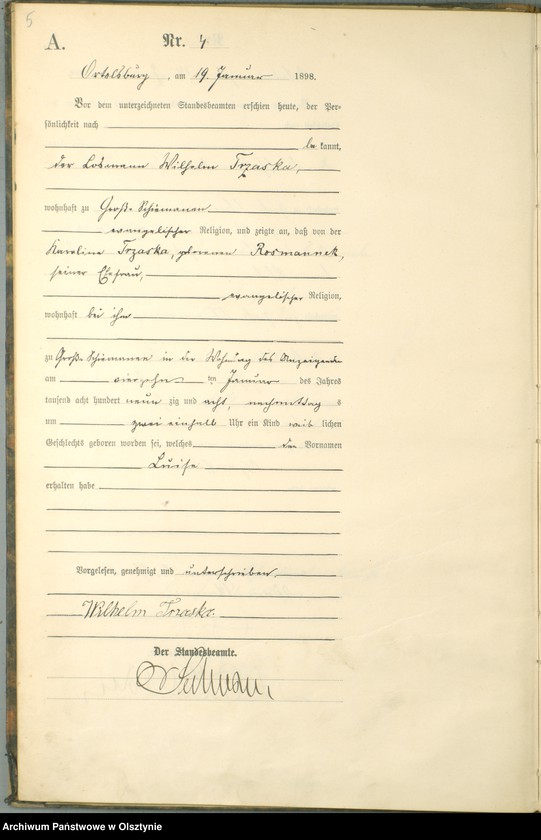 5
A. Nr. 4
Ortelsburg, am 19. Januar 1898.
Vor dem unterzeichneten Standesbeamten erschien heute, der Per-
sönlichkeit nach
be kannt,
der Losmann Wilhelm Trzaska,
wohnhaft zu Groß-Schiemanen
evangelischer Religion, und zeigte an, daß von der
Karoline Trzaska, geborenen Rosmannek,
seiner Ehefrau,
evangelischer Religion,
wohnhaft bei ihm
zu Groß-Schiemanen in der Wohnung des Anzeigenden
am vierzehn ten Januar des Jahres
tausend acht hundert neun zig und acht, nachmittag s
um zwei einhalb Uhr ein Kind weib lichen
Geschlechts geboren worden sei, welches den Vornamen
Luise
erhalten habe
Vorgelesen, genehmigt und unterschrieben
Wilhelm Trzaska.
Der Standesbeamte.
Archiwum Państwowe w Olsztynie